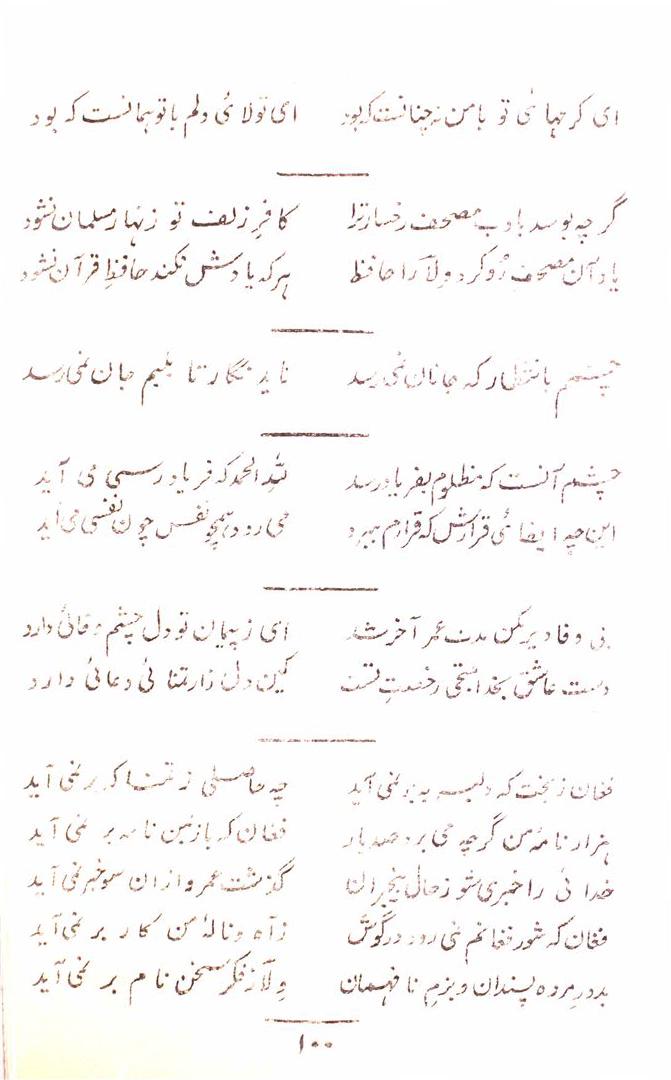 ای کرمهائی تو بامن نه چنانست که بود ای تولائی دلم با تو همانست که بود
گرچه بوسد بادب مصحف رخسار ترا کافر زلف تو زنهار مسلمان نشود
یاد آن مصحف رو کرد ولا را حافظ هر که یادش نکند حافظ قرآن نشود
چشمم بانتظار که جانان نمی رسد ناید نگار تا بلبم جان نمی رسد
چشم آنست که مظلوم بفریاد رسد لله الحمد که فریاد رسی می آید
این چه ایفائی قرارش که قرارم ببرد می رود همچو نفس چون نفسی می آید
بی وفا دیر مکن مدت عمر آخر شد ای ز پیمان تو دل چشم وفائی دارد
دست عاشق بخدا رخصت تست کمین دل زار تمنائی دعائی دارد
فغان ز بخت که دلبر به بر نمی آید چه حاصلی ز تمنا که بر نمی آید
هزار نامه من گرچه می برد صد بار فغان که باز نامه بر نمی آید
خدائی را خبری شو ز حال بیخبران گذشت عمر و ازان سو خبر نمی آید
فغان که شور فغانم نمی رود در گوش ز آه و ناله من کار بر نمی آید
بدور مرده پسندان و بزم نافهمان ولا ز فکر سخن نام بر نمی آید
۱۰۰